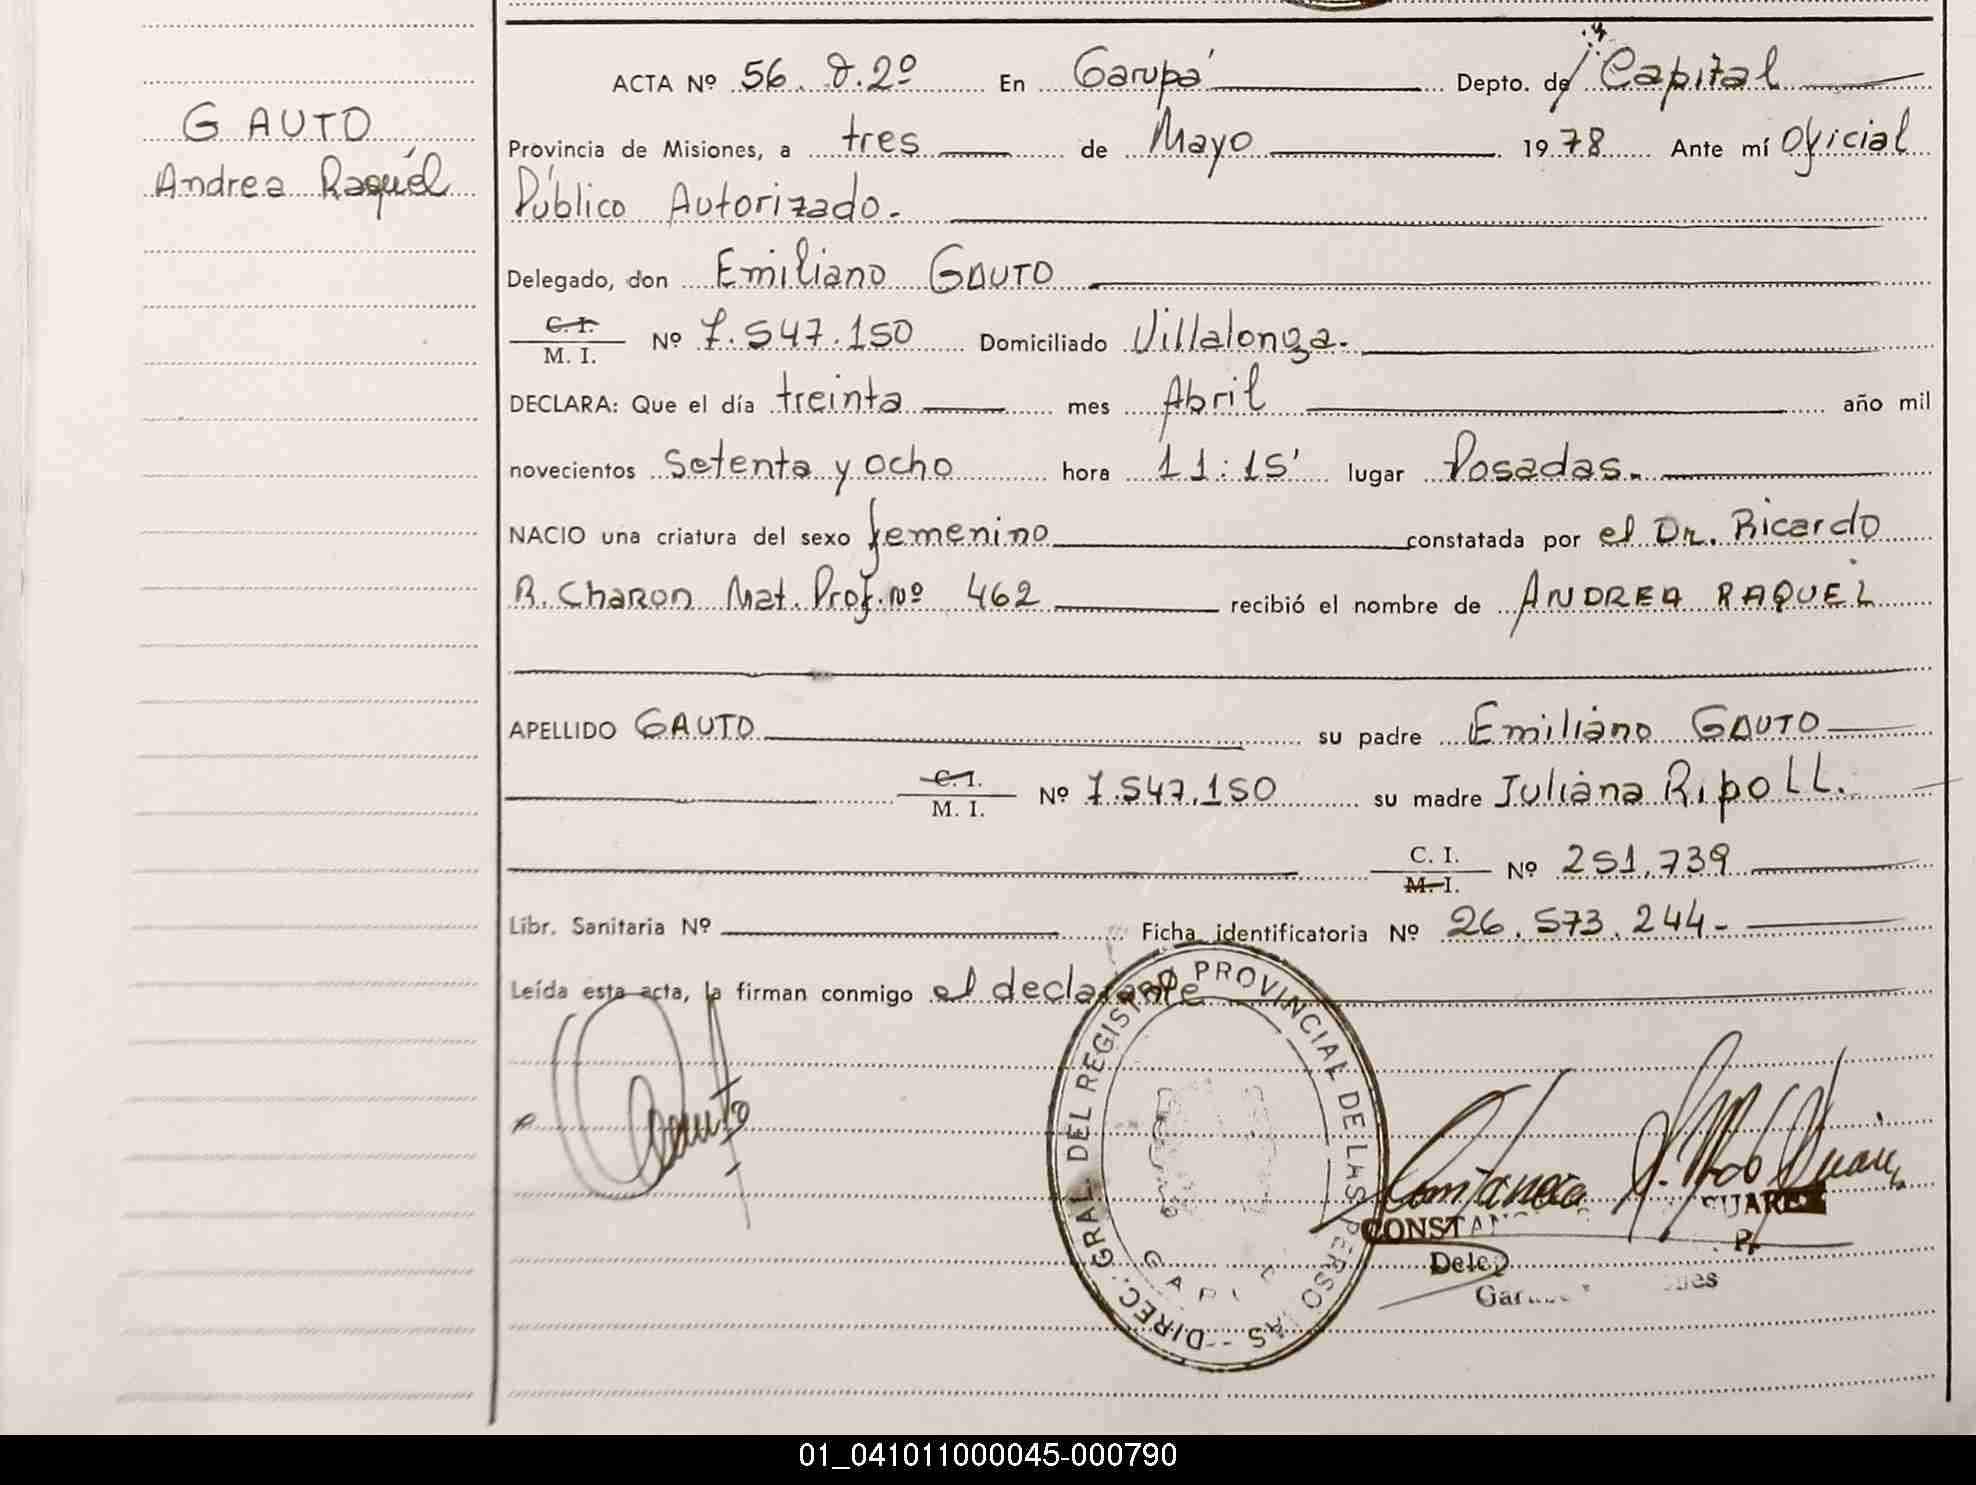 GAUTO
Andrea Raquél
ACTA Nº 56. J.2º En Garupá Depto. de Capital
Provincia de Misiones, a tres de Mayo 1978 Ante mí Oficial
Público Autorizado.-
Delegado, don Emiliano GAUTO
C. I.
M. I. Nº 7.547.150 Domiciliado Villalonga.-
DECLARA: Que el día treinta mes Abril año mil
novecientos setenta y ocho hora 11:15' lugar Posadas.-
NACIO una criatura del sexo femenino constatada por el Dr. Ricardo
R. Charon Mat. Prof. Nº 462 recibió el nombre de ANDREA RAQUEL
APELLIDO GAUTO su padre Emiliano GAUTO
C. I.
M. I. Nº 7.547.150 su madre Juliana Ripoll.
C. I.
M. I. Nº 251.739
Libr. Sanitaria Nº Ficha identificatoria Nº 26.573.244-
Leída esta acta, la firman conmigo el declarante
Gauto
DIREC. GRAL. DEL REGISTRO PROVINCIAL DE LAS PERSONAS
SUAREZ
01_041011000045-000790